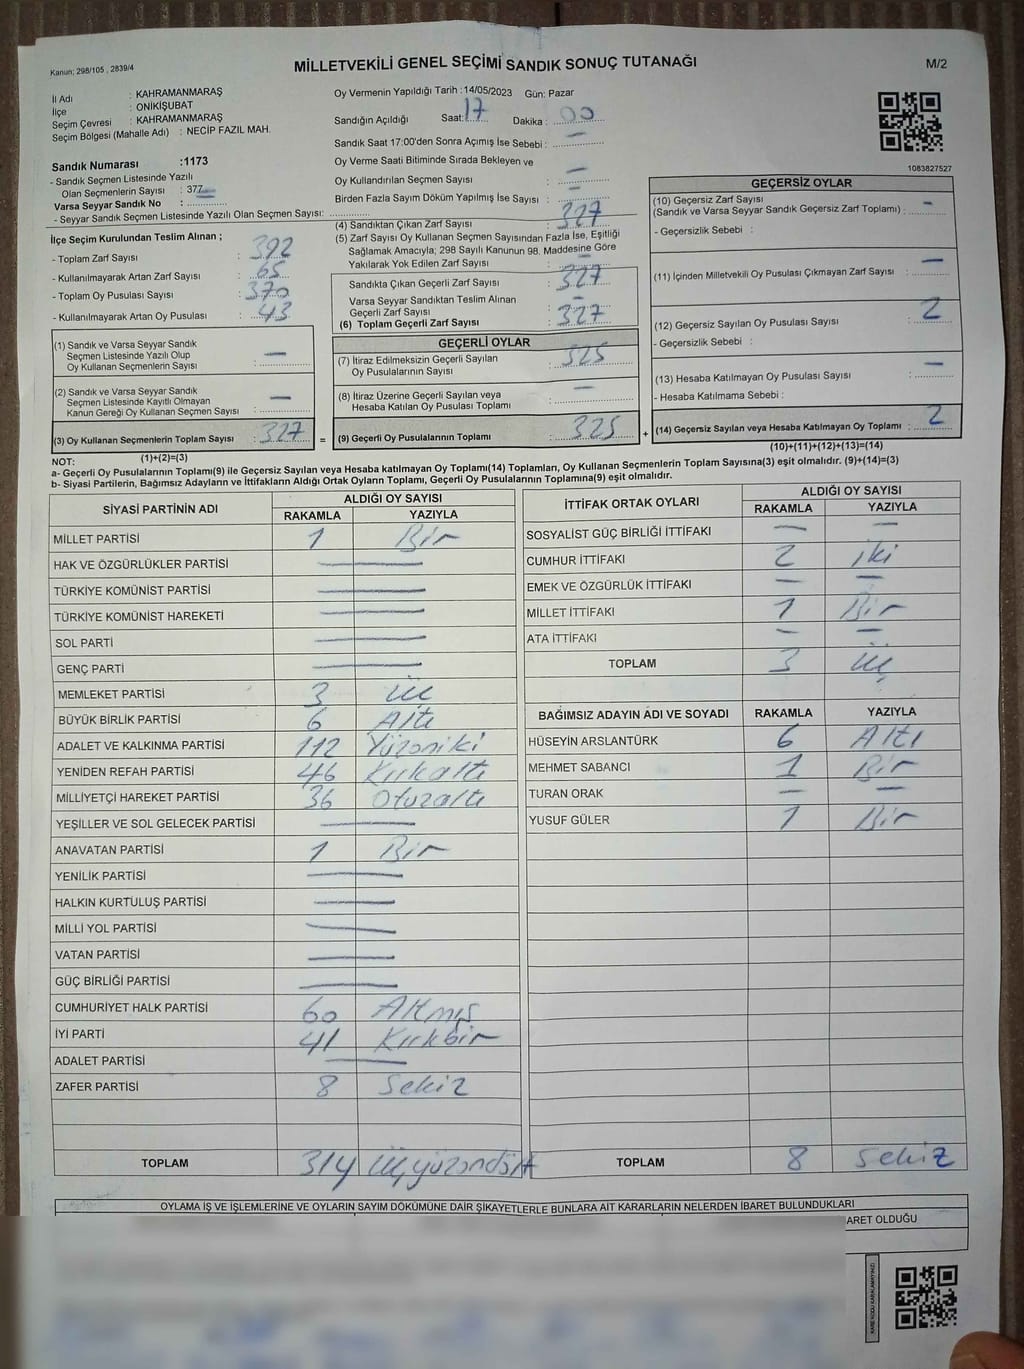 Kanun; 298/105 , 2839/4
MİLLETVEKİLİ GENEL SEÇİMİ SANDIK SONUÇ TUTANAĞI
M/2
İl Adı : KAHRAMANMARAŞ
İlçe : ONİKİŞUBAT
Seçim Çevresi : KAHRAMANMARAŞ
Seçim Bölgesi (Mahalle Adı) : NECİP FAZIL MAH.
Sandık Numarası :1173
- Sandık Seçmen Listesinde Yazılı
Olan Seçmenlerin Sayısı : 377
Varsa Seyyar Sandık No :
- Seyyar Sandık Seçmen Listesinde Yazılı Olan Seçmen Sayısı:
Oy Vermenin Yapıldığı Tarih :14/05/2023 Gün: Pazar
Sandığın Açıldığı Saat: 17 Dakika : 00
Sandık Saat 17:00'den Sonra Açımış İse Sebebi : —
Oy Verme Saati Bitiminde Sırada Bekleyen ve
Oy Kullandırılan Seçmen Sayısı : —
Birden Fazla Sayım Döküm Yapılmış İse Sayısı : —
1083827527
İlçe Seçim Kurulundan Teslim Alınan ;
- Toplam Zarf Sayısı : 392
- Kullanılmayarak Artan Zarf Sayısı : 65
- Toplam Oy Pusulası Sayısı : 370
- Kullanılmayarak Artan Oy Pusulası : 43
(1) Sandık ve Varsa Seyyar Sandık
Seçmen Listesinde Yazılı Olup
Oy Kullanan Seçmenlerin Sayısı : —
(2) Sandık ve Varsa Seyyar Sandık
Seçmen Listesinde Kayıtlı Olmayan
Kanun Gereği Oy Kullanan Seçmen Sayısı : —
(3) Oy Kullanan Seçmenlerin Toplam Sayısı : 327
(1)+(2)=(3)
(4) Sandıktan Çıkan Zarf Sayısı : 327
(5) Zarf Sayısı Oy Kullanan Seçmen Sayısından Fazla İse, Eşitliği
Sağlamak Amacıyla; 298 Sayılı Kanunun 98. Maddesine Göre
Yakılarak Yok Edilen Zarf Sayısı : —
Sandıkta Çıkan Geçerli Zarf Sayısı : 327
Varsa Seyyar Sandıktan Teslim Alınan
Geçerli Zarf Sayısı : —
(6) Toplam Geçerli Zarf Sayısı : 327
GEÇERLİ OYLAR
(7) İtiraz Edilmeksizin Geçerli Sayılan
Oy Pusulalarının Sayısı : 325
(8) İtiraz Üzerine Geçerli Sayılan veya
Hesaba Katılan Oy Pusulası Toplamı : —
= (9) Geçerli Oy Pusulalarının Toplamı : 325 +
GEÇERSİZ OYLAR
(10) Geçersiz Zarf Sayısı
(Sandık ve Varsa Seyyar Sandık Geçersiz Zarf Toplamı) : —
- Geçersizlik Sebebi :
(11) İçinden Milletvekili Oy Pusulası Çıkmayan Zarf Sayısı : —
(12) Geçersiz Sayılan Oy Pusulası Sayısı : 2
- Geçersizlik Sebebi :
(13) Hesaba Katılmayan Oy Pusulası Sayısı : —
- Hesaba Katılmama Sebebi :
(14) Geçersiz Sayılan veya Hesaba Katılmayan Oy Toplamı : 2
(10)+(11)+(12)+(13)=(14)
NOT:
a- Geçerli Oy Pusulalarının Toplamı(9) ile Geçersiz Sayılan veya Hesaba katılmayan Oy Toplamı(14) Toplamları, Oy Kullanan Seçmenlerin Toplam Sayısına(3) eşit olmalıdır. (9)+(14)=(3)
b- Siyasi Partilerin, Bağımsız Adayların ve İttifakların Aldığı Ortak Oyların Toplamı, Geçerli Oy Pusulalarının Toplamına(9) eşit olmalıdır.
SİYASİ PARTİNİN ADI ALDIĞI OY SAYISI
RAKAMLA YAZIYLA
MİLLET PARTİSİ 1 Bir
HAK VE ÖZGÜRLÜKLER PARTİSİ —
TÜRKİYE KOMÜNİST PARTİSİ —
TÜRKİYE KOMÜNİST HAREKETİ —
SOL PARTİ —
GENÇ PARTİ —
MEMLEKET PARTİSİ 3 Üç
BÜYÜK BİRLİK PARTİSİ 6 Altı
ADALET VE KALKINMA PARTİSİ 112 Yüzoniki
YENİDEN REFAH PARTİSİ 46 Kırkaltı
MİLLİYETÇİ HAREKET PARTİSİ 36 Otuzaltı
YEŞİLLER VE SOL GELECEK PARTİSİ —
ANAVATAN PARTİSİ 1 Bir
YENİLİK PARTİSİ —
HALKIN KURTULUŞ PARTİSİ —
MİLLİ YOL PARTİSİ —
VATAN PARTİSİ —
GÜÇ BİRLİĞİ PARTİSİ —
CUMHURİYET HALK PARTİSİ 60 Altmış
İYİ PARTİ 41 Kırkbir
ADALET PARTİSİ —
ZAFER PARTİSİ 8 Sekiz
TOPLAM 314 Üçyüzondört
İTTİFAK ORTAK OYLARI ALDIĞI OY SAYISI
RAKAMLA YAZIYLA
SOSYALİST GÜÇ BİRLİĞİ İTTİFAKI — —
CUMHUR İTTİFAKI 2 iki
EMEK VE ÖZGÜRLÜK İTTİFAKI — —
MİLLET İTTİFAKI 1 Bir
ATA İTTİFAKI — —
TOPLAM 3 Üç
BAĞIMSIZ ADAYIN ADI VE SOYADI RAKAMLA YAZIYLA
HÜSEYİN ARSLANTÜRK 6 Altı
MEHMET SABANCI 1 Bir
TURAN ORAK — —
YUSUF GÜLER 1 Bir
TOPLAM 8 Sekiz
OYLAMA İŞ VE İŞLEMLERİNE VE OYLARIN SAYIM DÖKÜMÜNE DAİR ŞİKAYETLERLE BUNLARA AİT KARARLARIN NELERDEN İBARET BULUNDUKLARI
ARET OLDUĞU
KARE KODU KARALAMAYINIZ!